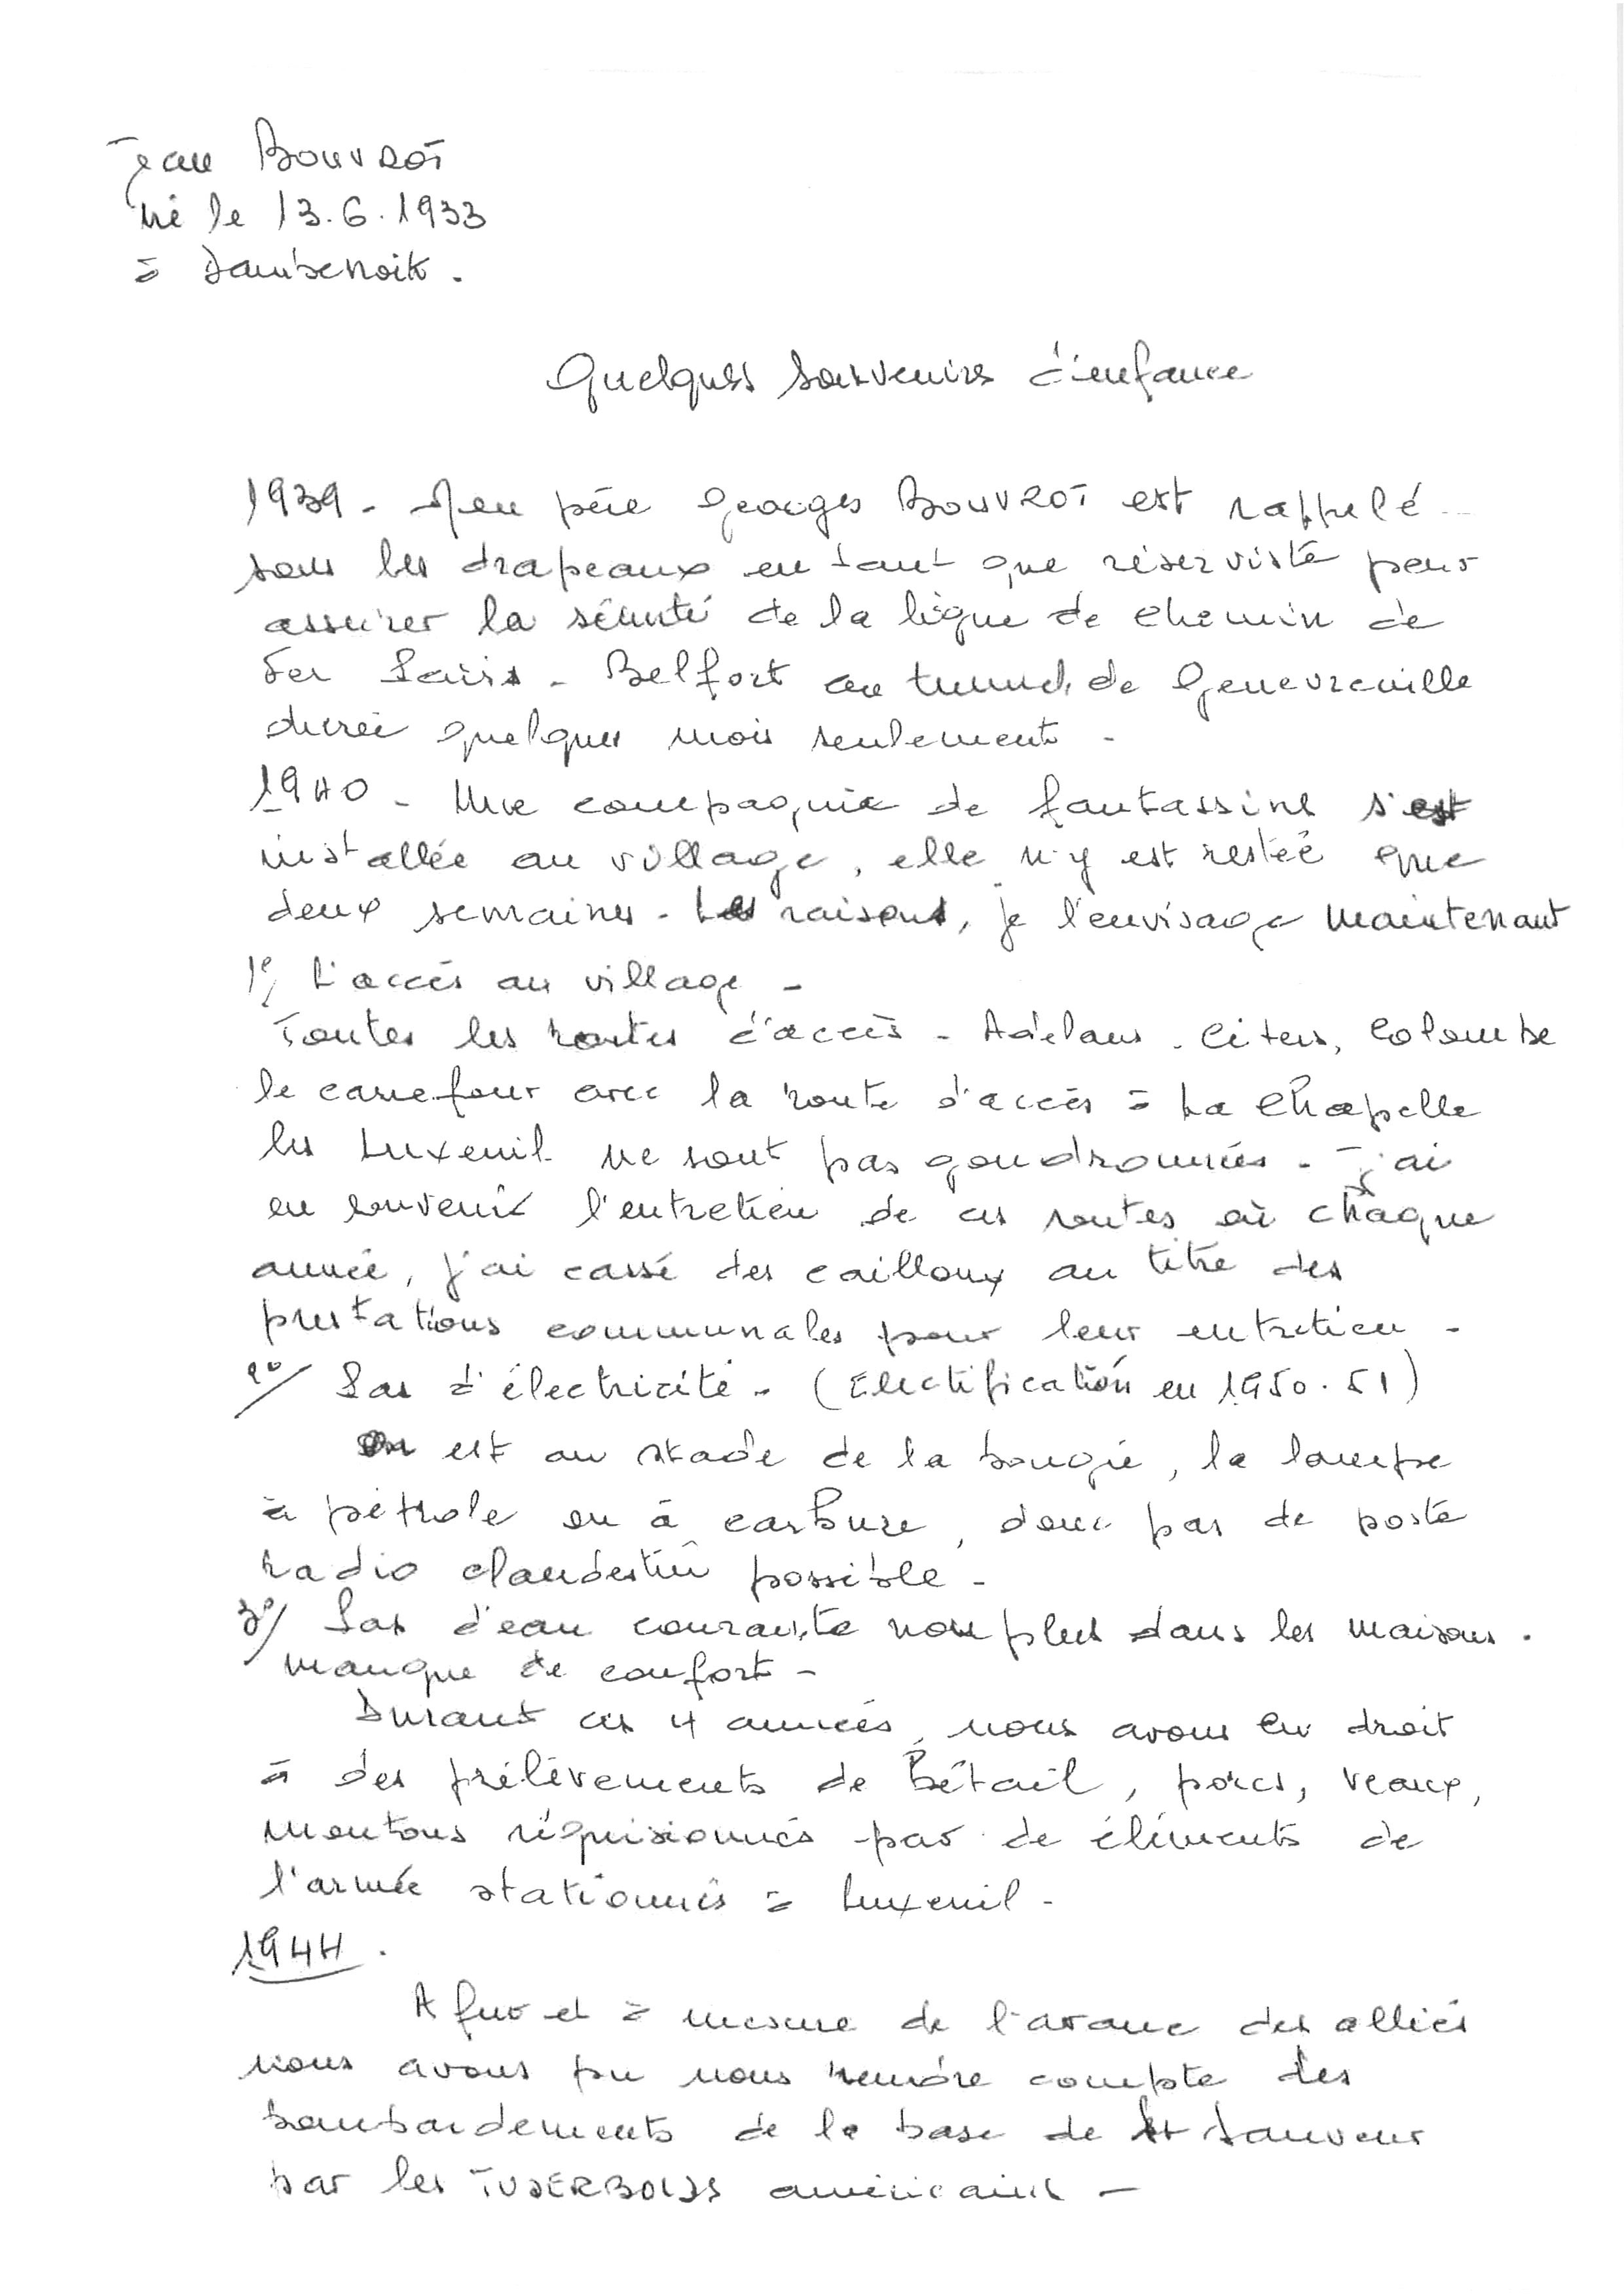 Jean BOUVROT
né le 13.6.1933
à Dambenoit.
Quelques souvenirs d'enfance
1939 - Mon père Georges BOUVROT est rappelé
sous les drapeaux en tant que réserviste pour
assurer la sécurité de la ligne de chemin de
fer Paris - Belfort au tunnel de Genevreuille
durée quelques mois seulement -
1940 - Une compagnie de fantassins s'est
installée au village, elle n'y est restée que
deux semaines - Les raisons, je l'envisage maintenant
1°/ L'accès au village -
Toutes les routes d'accès - Adelans - Citers, Colombe
le carrefour avec la route d'accès à La Chapelle
les Luxeuil ne sont pas goudronnées - J'ai
en souvenir l'entretien de ces routes où chaque
année, j'ai cassé des cailloux au titre des
prestations communales pour leur entretien -
2°/ Pas d'électricité - (Electification en 1950.51)
On est au stade de la bougie, la lampe
à pétrole ou à carbure, donc pas de poste
radio clandestin possible -
3°/ Pas d'eau courante non plus dans les maisons.
manque de confort -
Durant ces 4 années, nous avons eu droit
à des prélèvements de bétail, porcs, veaux,
moutons réquisionnés par de éléments de
l'armée stationnés à Luxeuil -
1944.
A fur et à mesure de l'avance des alliés
nous avons pu nous rendre compte des
bombardements de la base de St Sauveur
par les TUDERBOLDS américains -